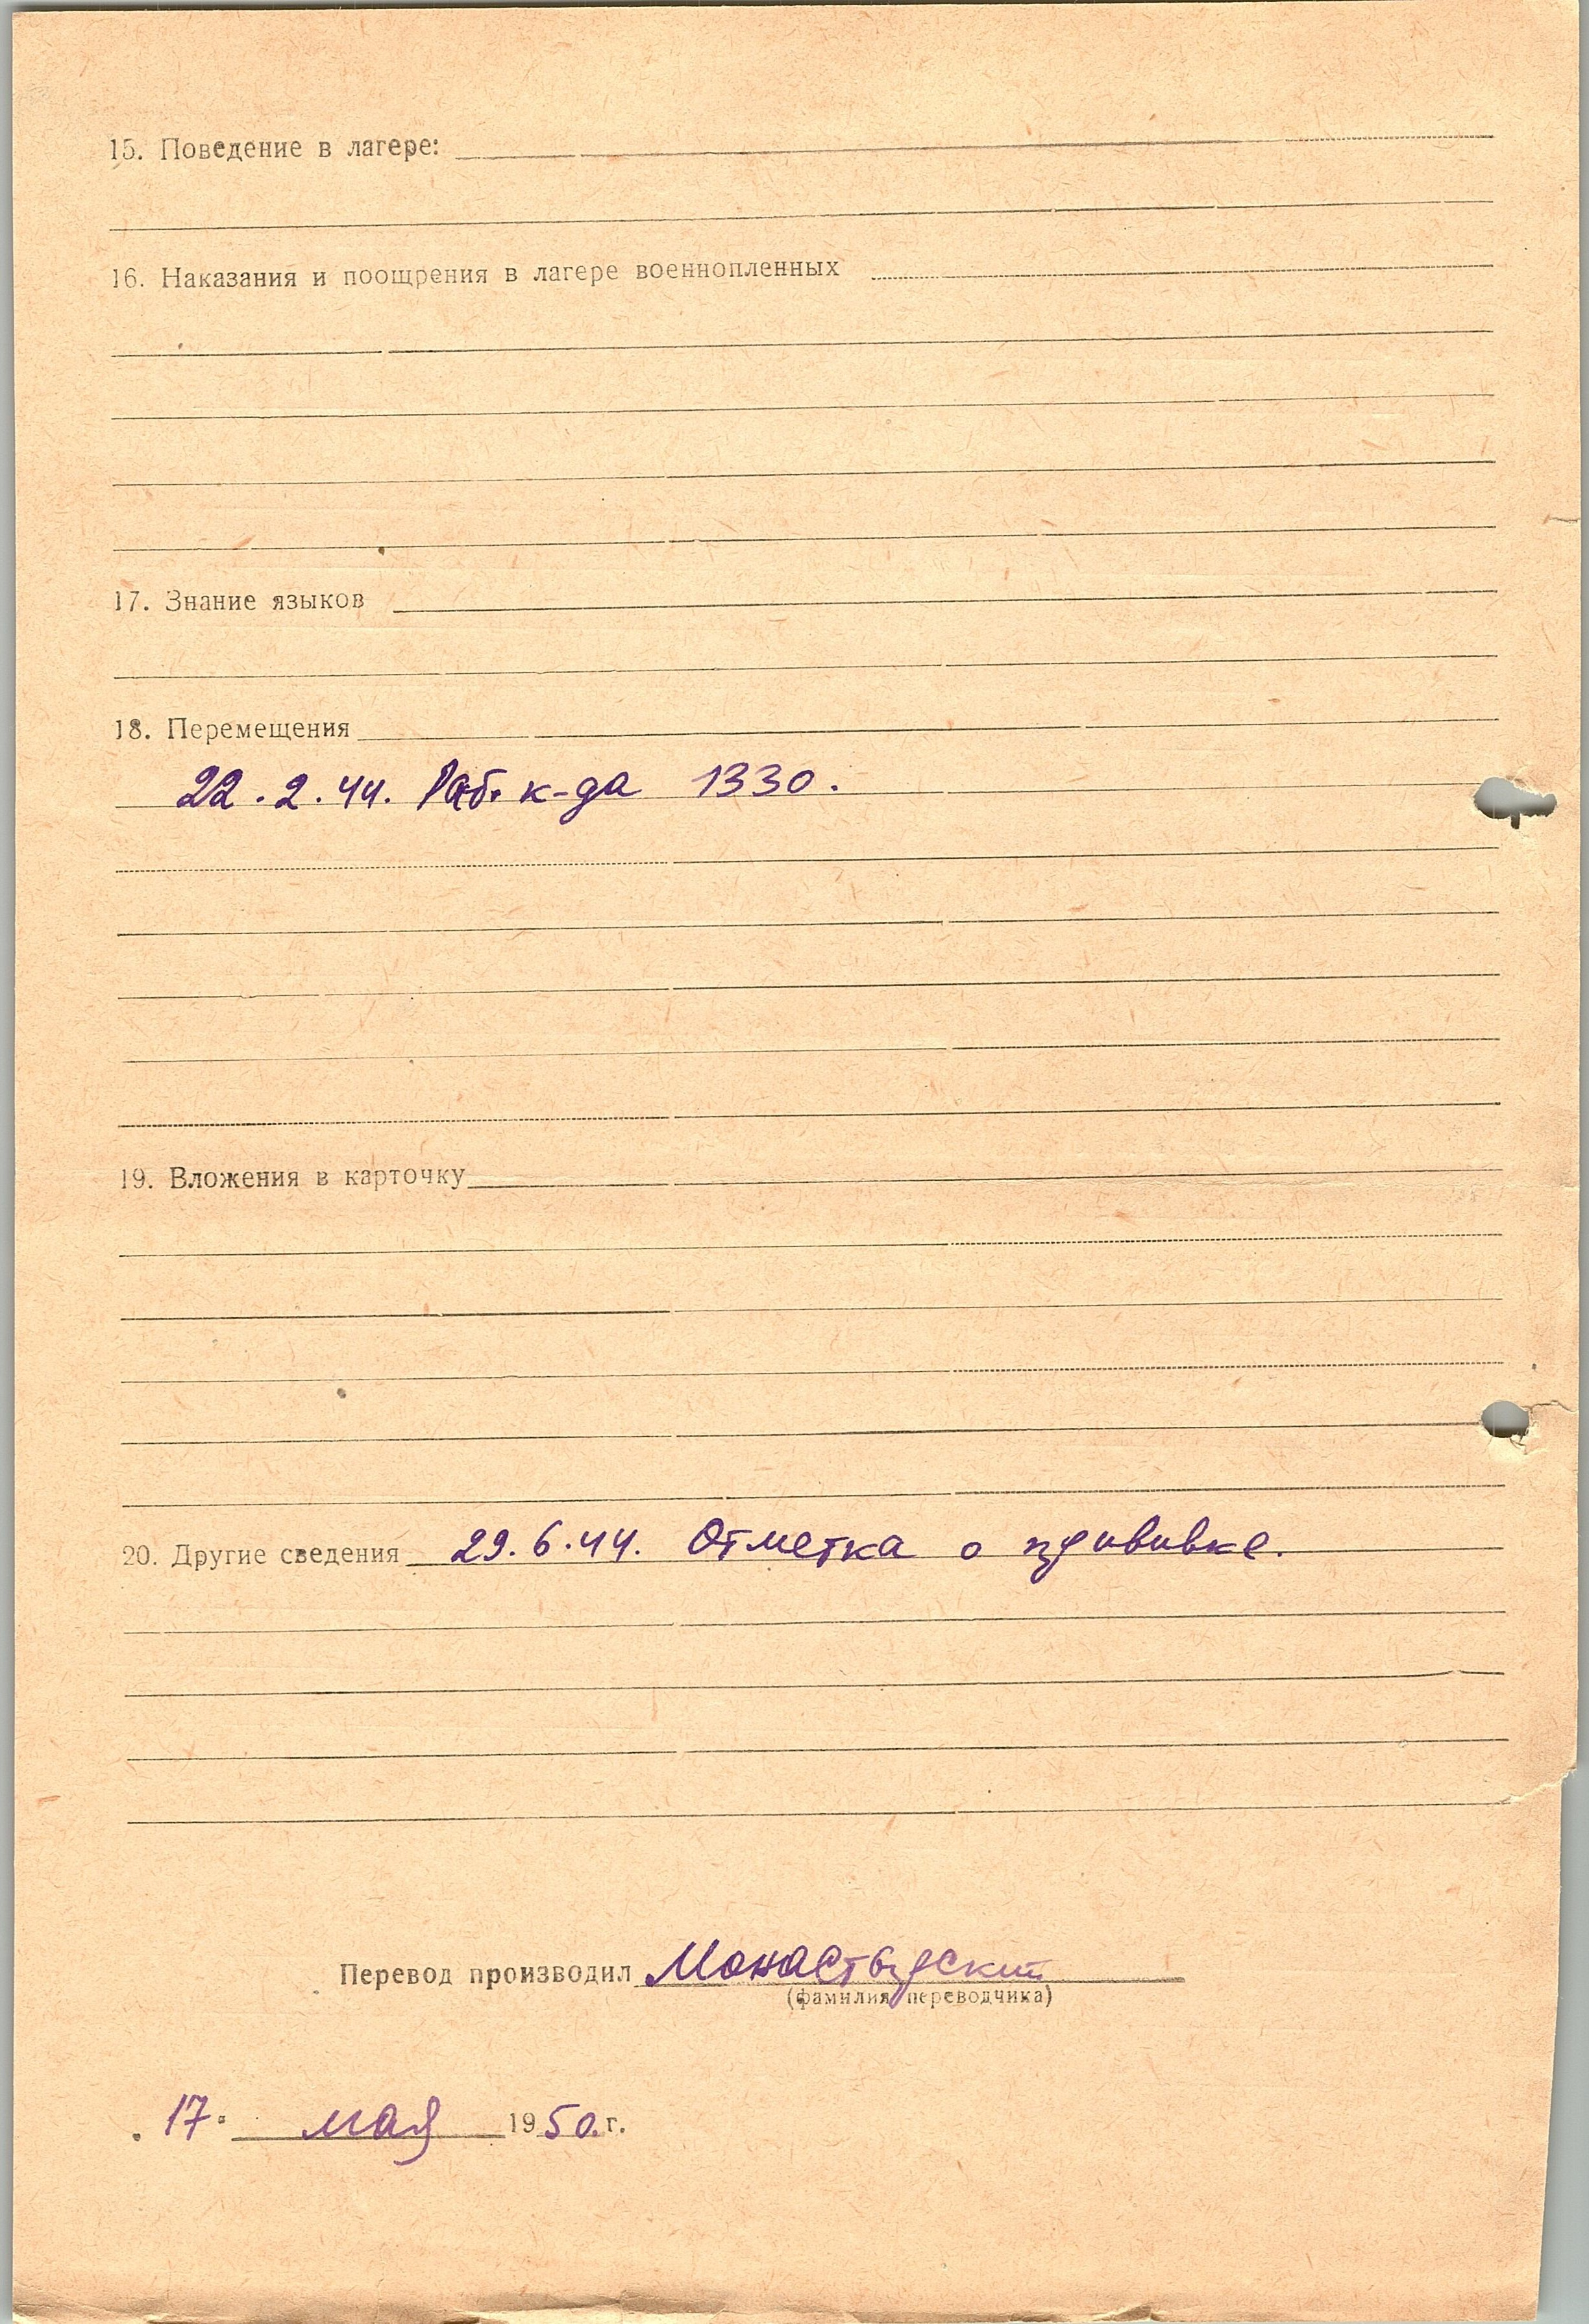 15. Поведение в лагере:
16. Наказания и поощрения в лагере военнопленных
17. Знание языков
18. Перемещения
22.2.44. Раб. к-да 1330.
19. Вложения в карточку
20. Другие сведения 29.6.44. Отметка о прививке.
Перевод производил Монастырский
(фамилия переводчика)
„17" мая 1950 г.